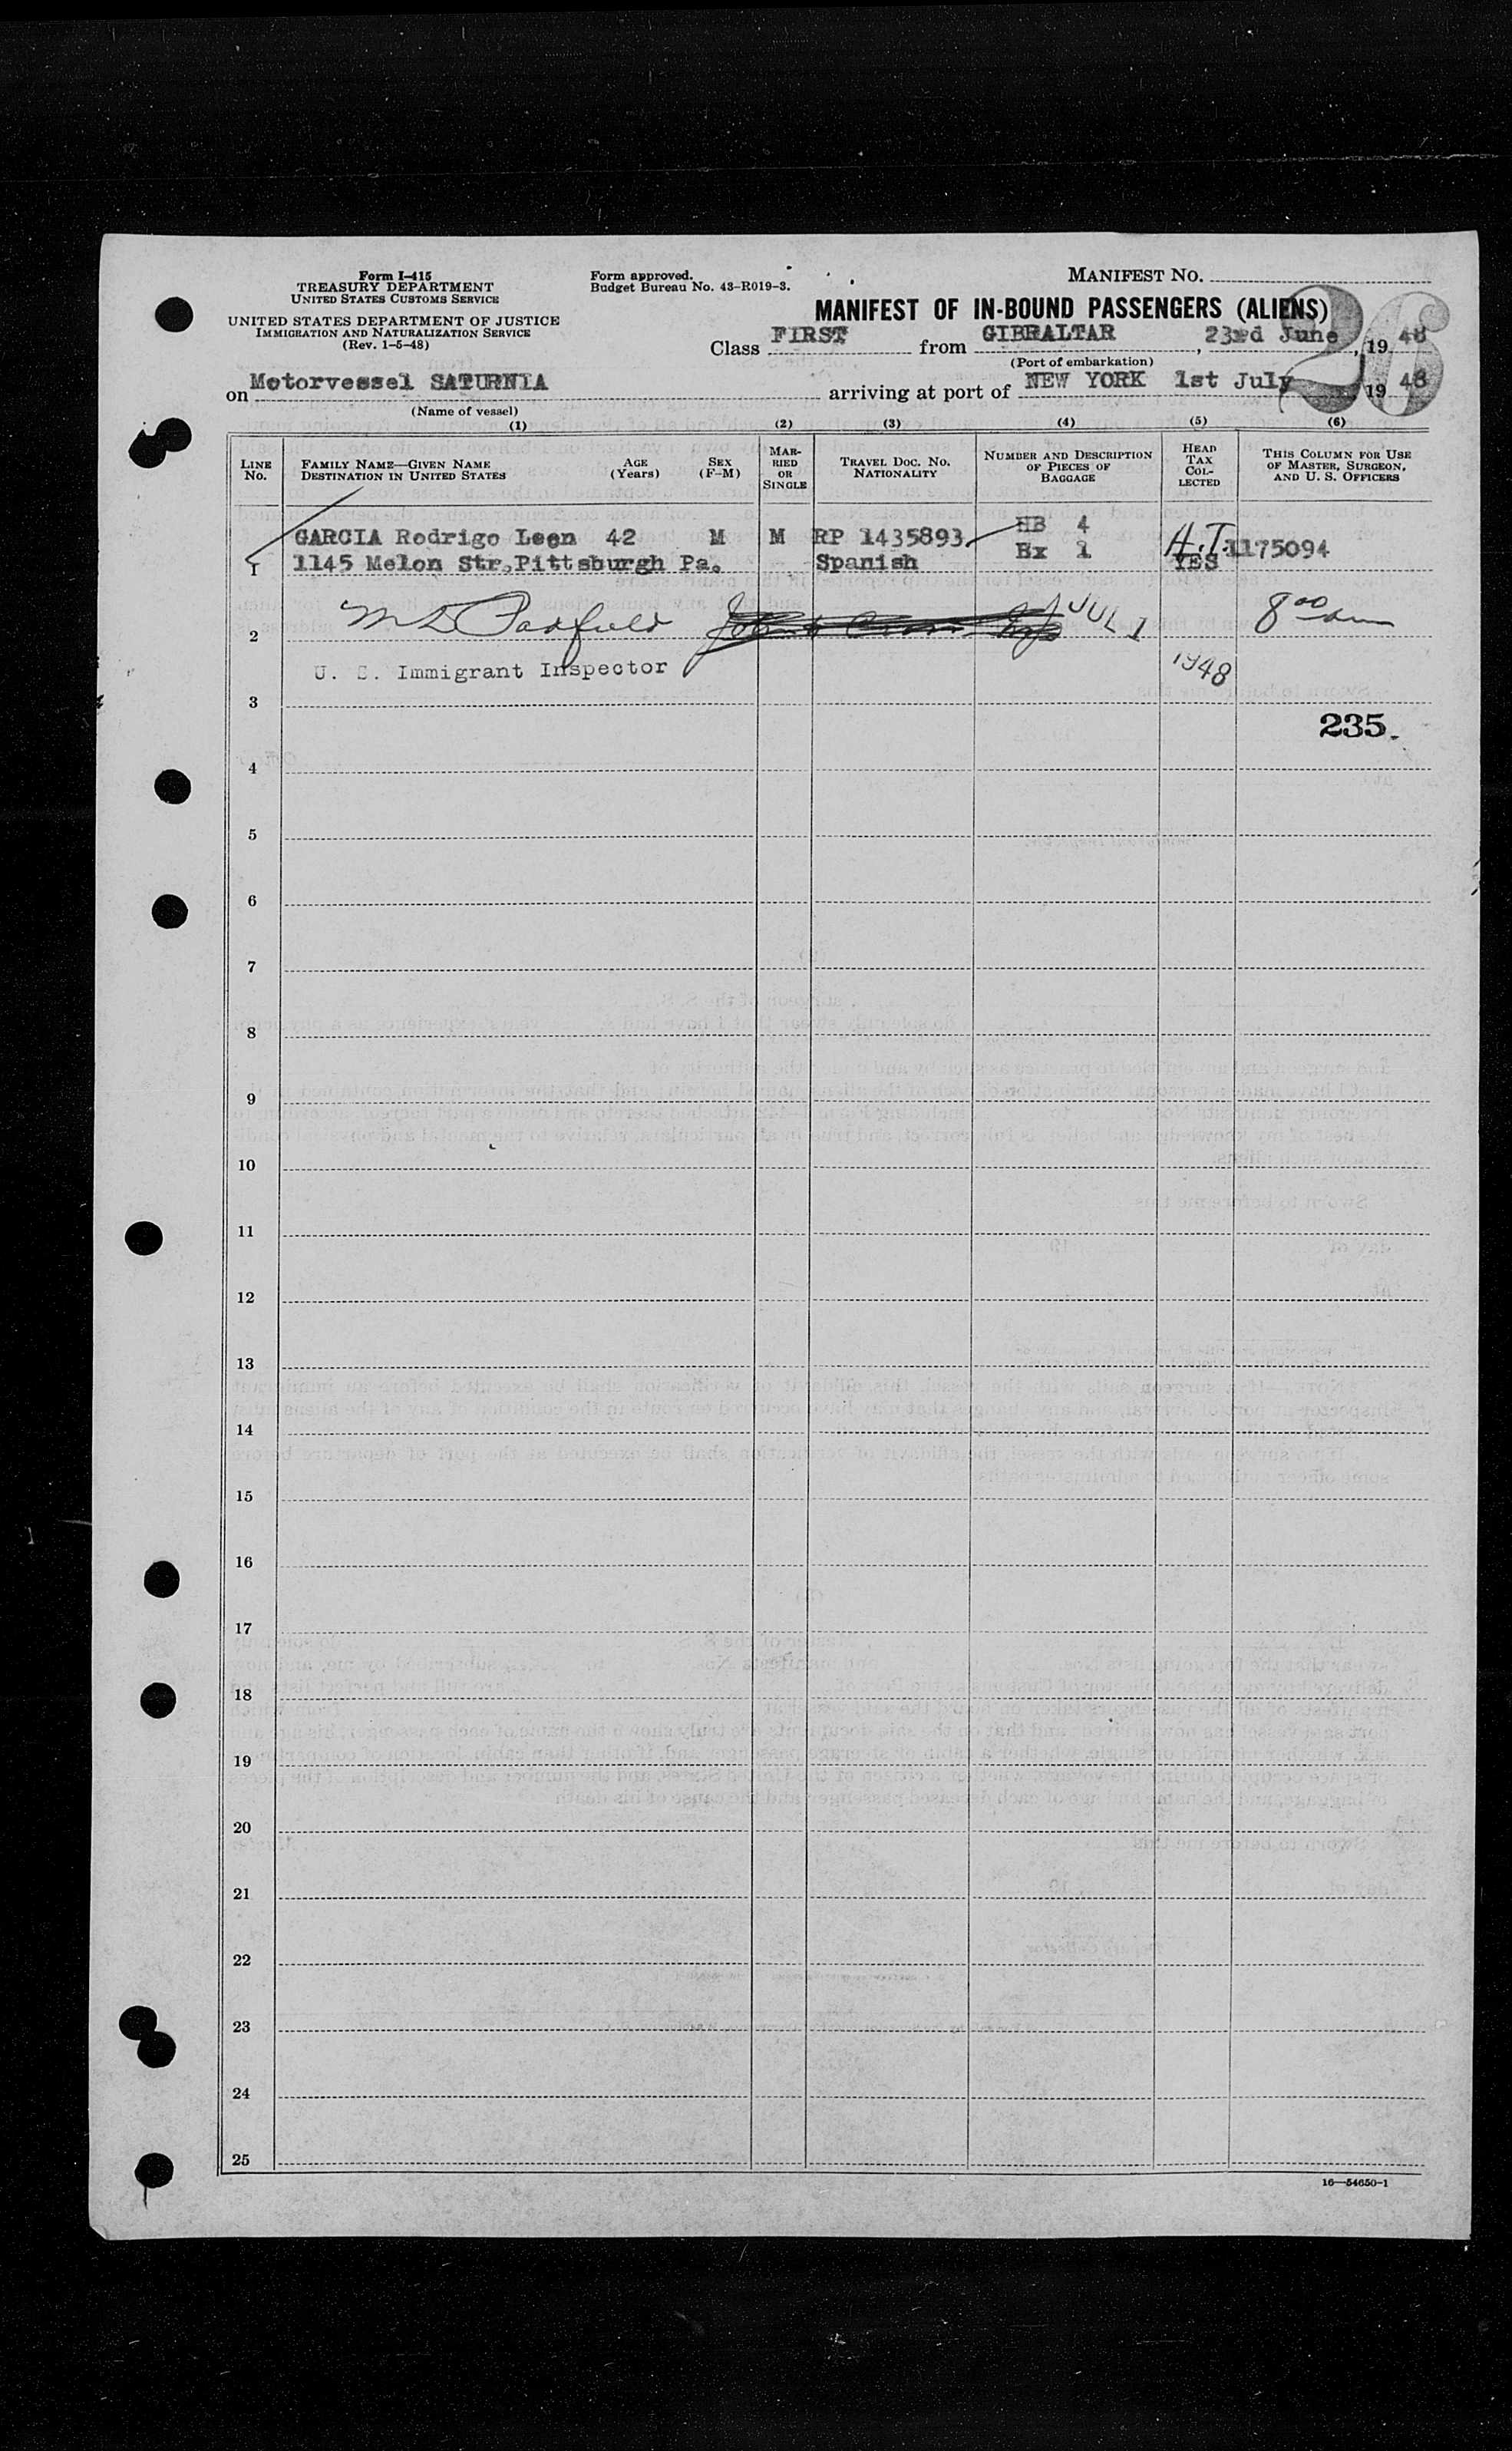 Form I-415
TREASURY DEPARTMENT
UNITED STATES CUSTOMS SERVICE
UNITED STATES DEPARTMENT OF JUSTICE
IMMIGRATION AND NATURALIZATION SERVICE
(Rev. 1-5-48)
Form approved.
Budget Bureau No. 43-R019-3.
MANIFEST NO.
26
MANIFEST OF IN-BOUND PASSENGERS (ALIENS)
Class FIRST from GIBRALTAR, 23rd June, 19 48
(Port of embarkation)
on Motorvessel SATURNIA arriving at port of NEW YORK 1st July 19 48
(Name of vessel)
(1) (2) (3) (4) (5) (6)
LINE No.
FAMILY NAME—GIVEN NAME
DESTINATION IN UNITED STATES
AGE (Years)
SEX (F-M)
MARRIED OR SINGLE
TRAVEL DOC. NO.
NATIONALITY
NUMBER AND DESCRIPTION OF PIECES OF BAGGAGE
HEAD TAX COLLECTED
THIS COLUMN FOR USE OF MASTER, SURGEON, AND U. S. OFFICERS
GARCIA Rodrigo Leon 42 M M RP 1435893 HB 4 H.T. 1175094
1 1145 Melon Str, Pittsburgh Pa. Spanish Bx 1 YES
2 JUL 1
U. S. Immigrant Inspector 1948
3
235.
4
5
6
7
8
9
10
11
12
13
14
15
16
17
18
19
20
21
22
23
24
25
16—54650-1